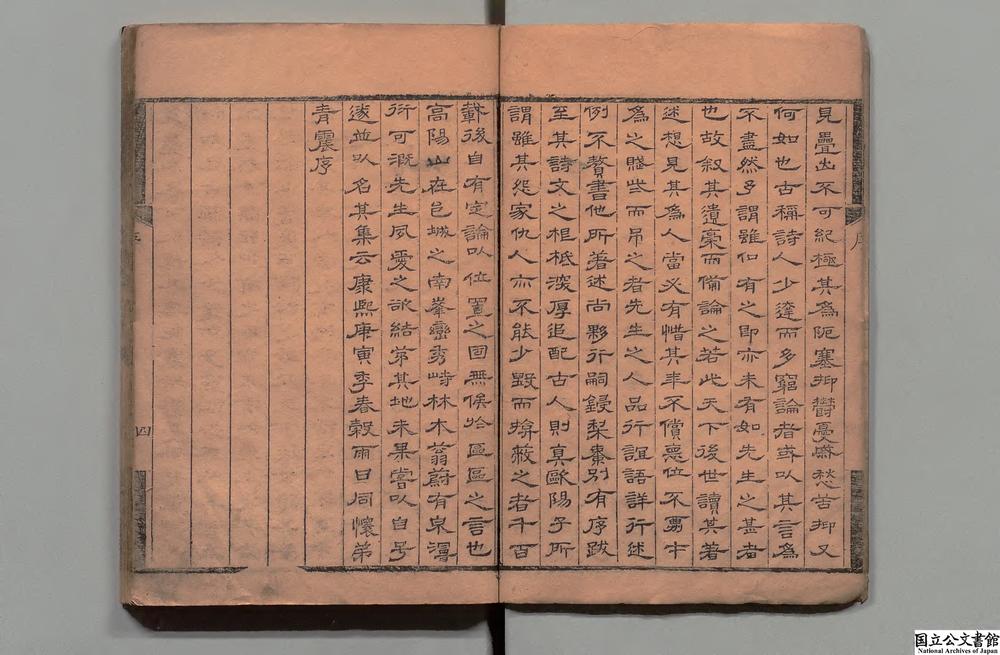 見疊出不可紀極其為阨塞抑鬱憂愁苦抑又
何如也古稱詩人少達而多窮論者或以其言為
不盡然予謂雖似有之即亦未有如先生之甚者
也故叙其遺稾而備論之若此天下後世讀其著
述想見其為人當必有惜其年不償悳位不
為之賤些而吊之者先生之人品行誼語詳行述
例不贅書他所著述尚夥行嗣鋟棃棗別有序跋
至其詩文之根柢深厚追配古人則真歐陽子所
謂雖其怨家仇人亦不能少毀而揜蔽之者千百
載後自有定論以位置之固無俟於區區之言也
高陽山在邑城之南峯巒秀峙林木蓊蔚有泉瀠
衍可溉先生夙愛之欲結茅其地未果嘗以自号
遂並以名其集云康熙庚寅季春穀雨日同懷弟
青震序
序
四
国立公文書館
National Archives of Japan